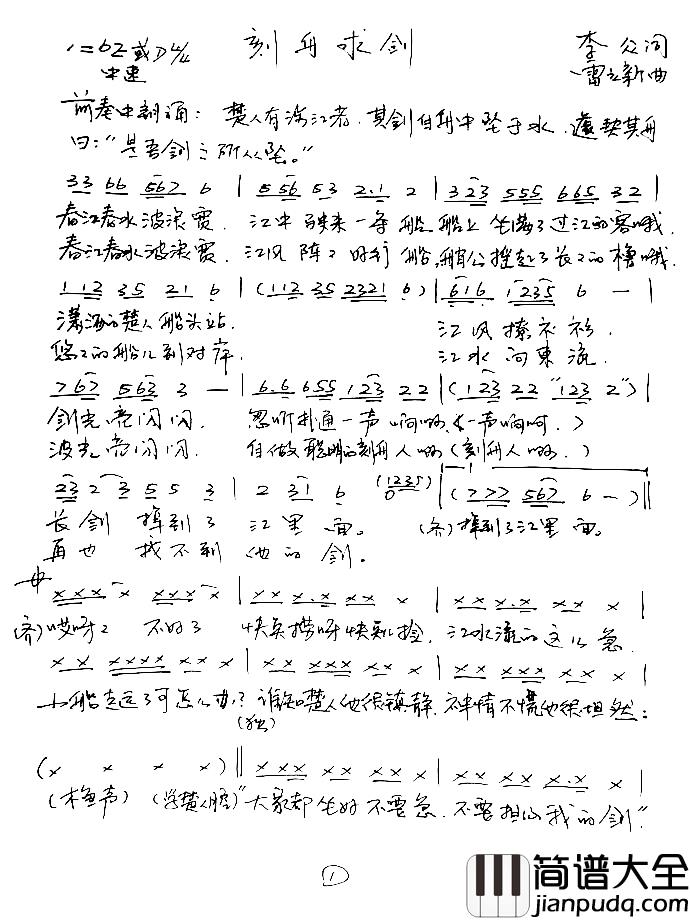 1=bE或D 4/4 刻舟求剑 李众词
中速 雷立新曲
前奏中朗诵：楚人有涉江者，其剑自舟中坠于水，遽契其舟
曰："是吾剑之所从坠。"
33 66 567 6 | 5 56 53 2·1 2 | 3 23 555 665 32 |
春江春水波浪宽，江中驶来一条船，船上坐满了过江的客哦，
春江春水波浪宽，江风阵阵好行船，船公摇起了长长的橹哦，
1 12 35 21 6 | (112 35 2321 6) | 616 1235 6 — |
潇洒的楚人船头站， 江风撩衣衫，
悠悠的船儿到对岸， 江水向东流，
767 563 3 — | 6·6 655 123 22 | (123 22 "123 2") |
剑光亮闪闪， 忽听扑通一声响呦（一声响呵，）
波光亮闪闪， 自做聪明的刻舟人呦（刻舟人呦，）
23 2 3 5 5 3 | 2 31 6 (1235) 0 | (777 567 6 —) ||
长剑掉到了江里面。 （齐）掉到了江里面。
再也找不到他的剑。
xxx x xxx x | xx x·x xx x | xx x·x xx x |
（齐）哎呀呀 不好了 快点捞呀快点捡，江水流的这么急，
xx xxxx xx x | xx xxx xx x | xx xxx xx x |
小船走远了可怎么办？谁知楚人他很镇静，衣冠不慌他很坦然：
（独）
(x x x x) || xxx xx xx x | xx xx x·x x |
（木鱼声）（学楚人腔）"大家都坐好不要急，不要担心我的剑"
1
简谱大全
jianpudq.com